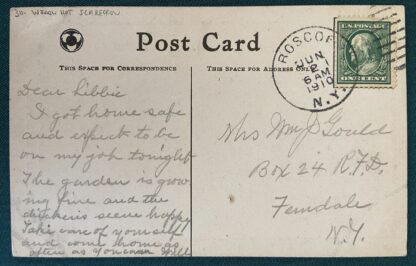 30. WRECK HOT SCARECROW
Post Card
THIS SPACE FOR CORRESPONDENCE
THIS SPACE FOR ADDRESS ONLY
ROSCOE
JUN
21
6 AM
1910
N.Y.
U.S. POSTAGE
ONE CENT
Dear Libbie
I got home safe
and expect to be
on my job tonight
The garden is grow
ing fine and the
chickens seem happy
Take care of yourself
and come home as
often as you can Will
Mrs Wm J Gould
Box 24 R.F.D.
Ferndale
N.Y.